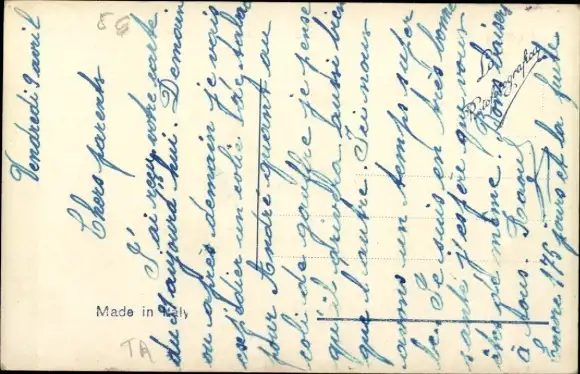 Vendredi 9 avril
Chers parents
J'ai reçu votre carte
du aujourd'hui. Demain
ou après demain je vais
expédier un colis de
pour André quant au
colis de gauffre je pense
qu'il arrivera aussi bien
que l'autre. Ici nous
avons un temps super
be. Je suis en très bonne
santé j'espère que vous
êtes de même. Bons Baisers
à tous.
Encore 175 jours et la fuite
Made in Italy
TA